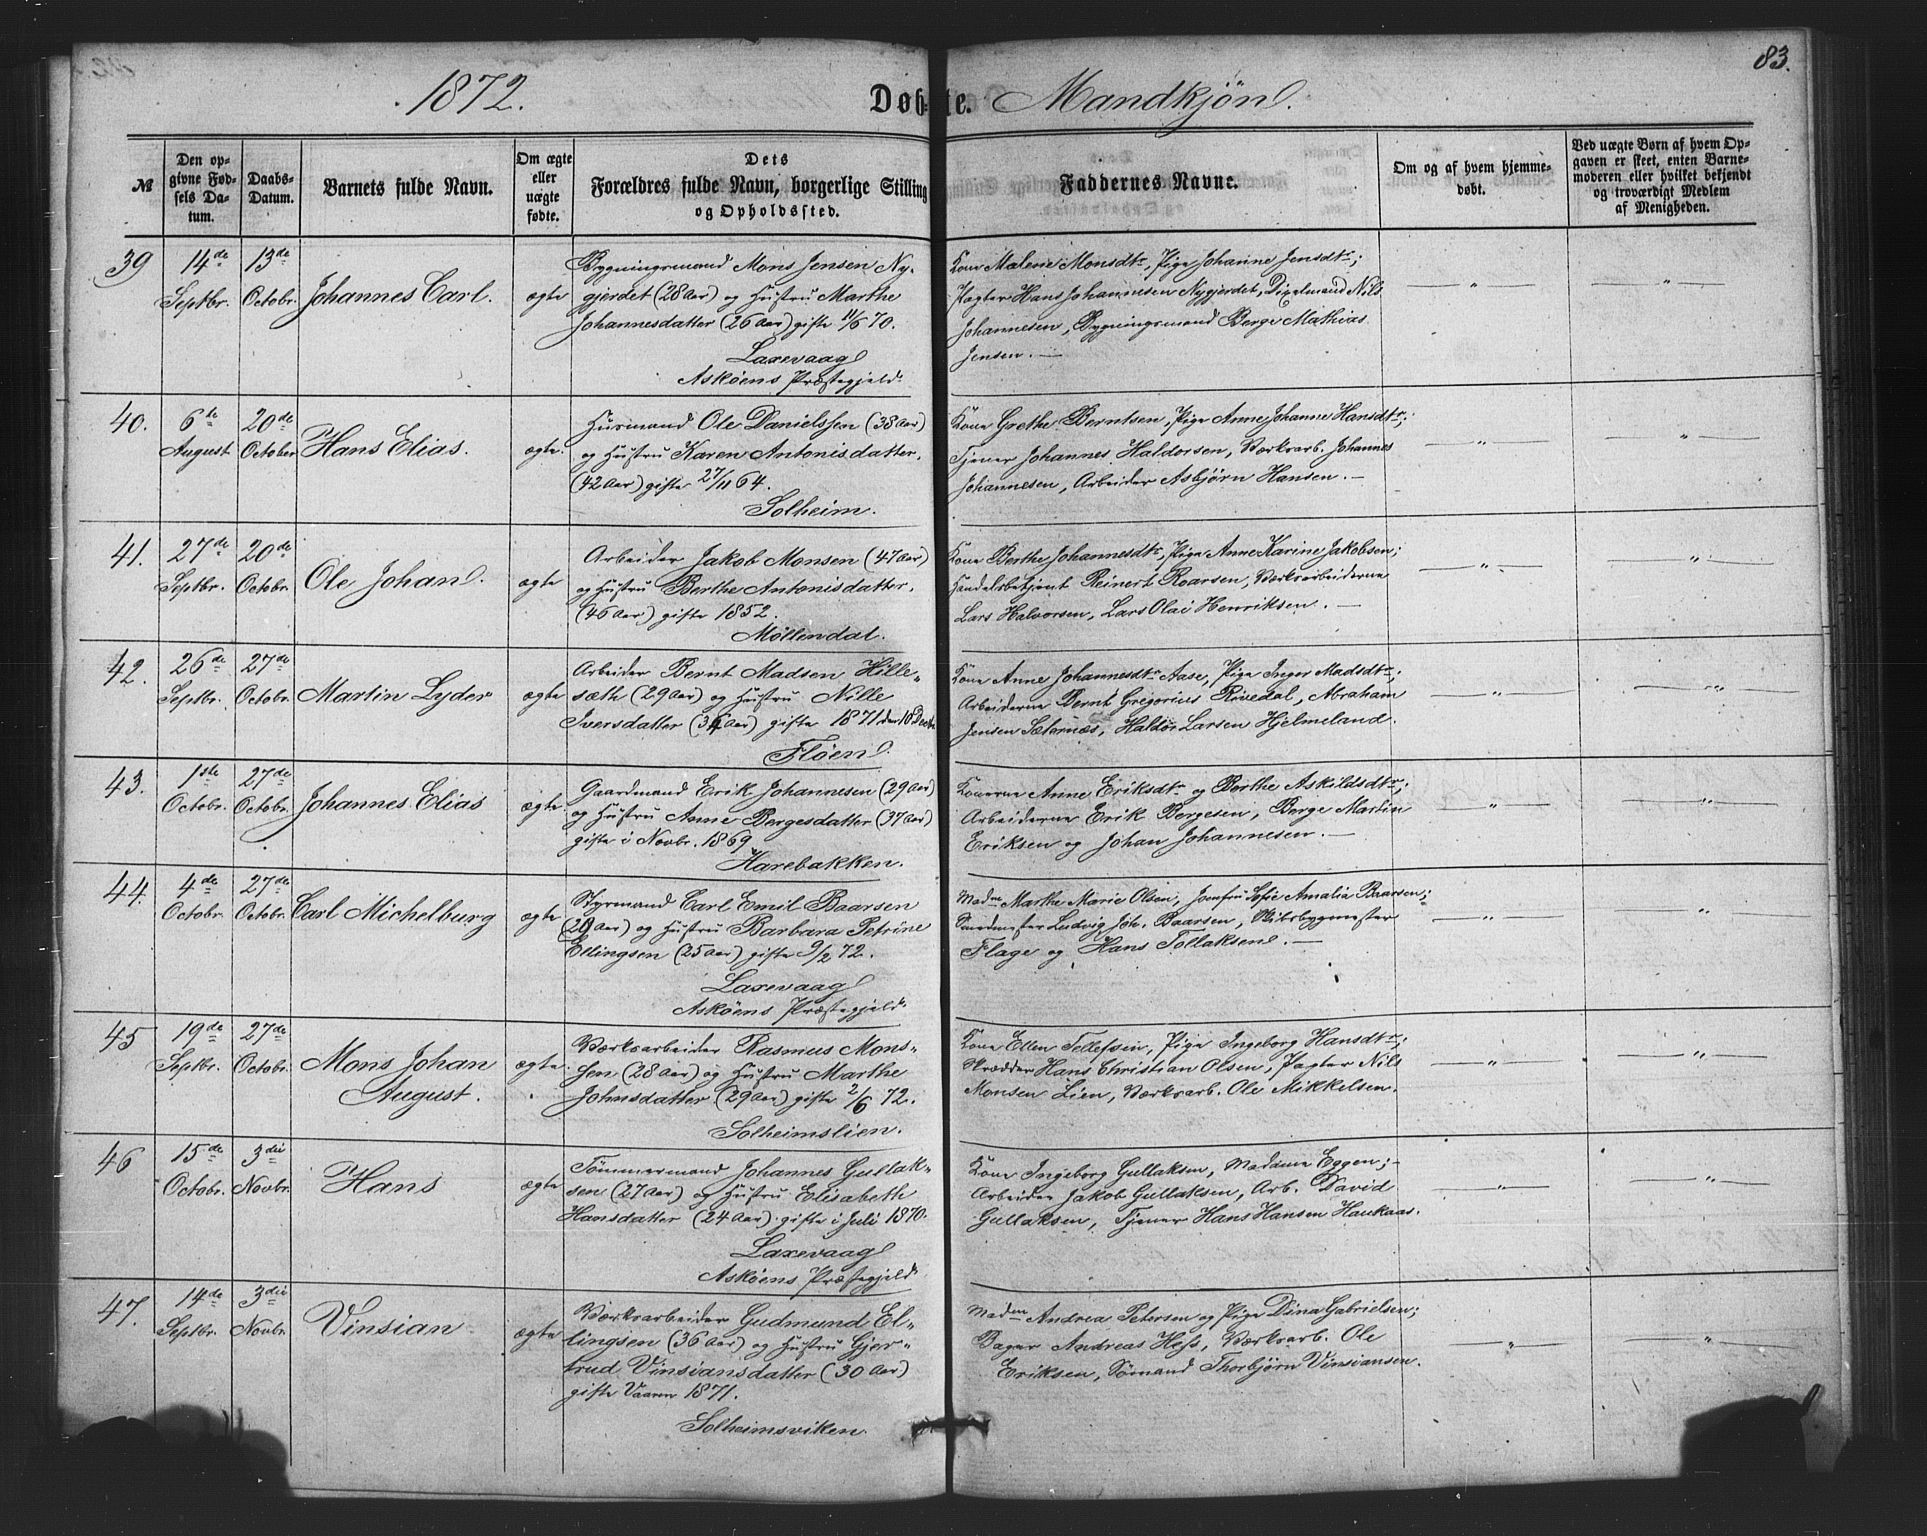 83.
1872. Døbte. Mandkjøn.
№ | Den opgivne Fødsels Datum. | Daabs-Datum. | Barnets fulde Navn. | Om ægte eller uægte fødte. | Dets Forældres fulde Navn, borgerlige Stilling og Opholdssted. | Faddernes Navne. | Om og af hvem hjemmedøbt. | Ved uægte Børn af hvem Opgaven er skeet, enten Barnemoderen eller hvilket bekjendt og troværdigt Medlem af Menigheden.
39 | 14de Septbr. | 13de Octobr. | Johannes Carl. | ægte
Bygningsmand Mons Jensen Ny-
gjerdet (28 Aar) og Hustru Marthe
Johannesdatter (26 Aar) gifte 11/6 70.
Laxevaag
Askøens Præstegjeld.
Kone Malene Monsdtr, Pige Johanne Jensdtr;
Pagter Hans Johannesen Nygjerdet, Dixelmand Nils
Johannesen, Bygningsmand Berge Mathias
Jensen. —
— " —
"
40. | 6te August | 20de October | Hans Elias. | ægte.
Husmand Ole Danielssen (38 Aar)
og Hustru Karen Antonisdatter,
(42 Aar) gifte 27/11 64.
Solheim.
Kone Grethe Berntsen, Pige Anne Johanne Hansdtr;
Tjener Johannes Haldorsen, Værksarb. Johannes
Johannesen, Arbeider Asbjørn Hansen. —
— " —
— " —
41. | 27de Septbr. | 20de Octobr. | Ole Johan. | ægte
Arbeider Jakob Monsen (47 Aar)
og Hustru Berthe Antonisdatter,
(46 Aar) gifte 1852.
Møllendal.
Kone Berthe Johannesdtr, Pige Anne Karine Jakobsen;
Handelsbetjent Reinert Roarsen, Værksarbeiderne
Lars Halvorsen, Lars Olai Henriksen. —
— " —
— " —
42. | 26de Septbr. | 27de Octobr. | Martin Lyder | ægte
Arbeider Bernt Madsen Hille-
sæth (29 Aar) og Hustru Nille
Iversdatter (34 Aar) gifte 1871 den 10 Decbr.
Fløen.
Kone Anne Johannesdtr Aase, Pige Inger Madsdtr;
Arbeiderne Bernt Gregorius Rivedal, Abraham
Jensen Sæternæs, Haldor Larsen Hjelmeland.
— " —
— " —
43. | 1ste Octobr. | 27de Octobr. | Johannes Elias | ægte
Gaardmand Erik Johannesen (29 Aar)
og Hustru Anne Bergesdatter (37 Aar)
gifte i Novbr. 1869.
Harebakken.
Konerne Anne Eriksdtr og Berthe Askildsdtr;
Arbeiderne Erik Bergesen, Berge Martin
Eriksen og Johan Johannesen. —
— " —
— " —
44. | 4de Octobr. | 27de Octobr. | Carl Michelburg | ægte
Styrmand Carl Emil Baarsen
(29 Aar) og Hustru Barbara Petrine
Ellingsen (25 Aar) gifte 9/2 72.
Laxevaag
Askøens Præstegjeld.
Madme Marthe Marie Olsen, Jomfru Sofie Amalia Baarsen;
Ludvig Joh. Baarsen, Skibsbygmester
Flage og Hans Tollaksen. —
— " —
"
45 | 19de Septbr. | 27de Octobr. | Mons Johan August. | ægte.
Værksarbeider Rasmus Mons-
sen (28 Aar) og Hustru Marthe
Johnsdatter (29 Aar) gifte 2/6 72.
Solheimslien.
Kone Ellen Tellefsen, Pige Ingeborg Hansdtr;
Skrædder Hans Christian Olsen, Pagter Nils
Monsen Lien, Værksarb. Ole Mikkelsen.
"
— " —
46 | 15de Octobr. | 3die Novbr. | Hans | ægte
Tømmermand Johannes Gullak-
sen (27 Aar) og Hustru Elisabeth
Hansdatter (24 Aar) gifte i Juli 1870.
Laxevaag
Askøens Præstegjeld.
Kone Ingeborg Gullaksen, Madame Eggen;
Arbeider Jakob Gullaksen, Arb. David
Gullaksen, Tjener Hans Hansen Haukaas.
— " —
— " —
47. | 14de Septbr. | 3die Novbr. | Vinsian | ægte
Værksarbeider Gudmund El-
lingsen (36 Aar) og Hustru Gjer-
trud Vinsiansdatter (30 Aar)
gifte Vaaren 1871.
Solheimsviken.
Madmen Andrea Petersen og Pige Dina Gabrielsen;
Bager Andreas Hess, Værksarb. Ole
Eriksen, Sømand Thorbjørn Vinsiansen.
"
— " —